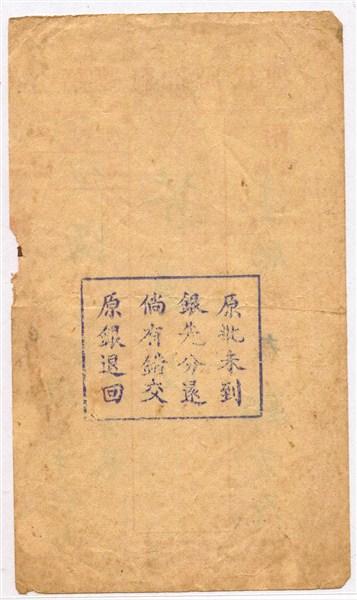 原批未到
銀先分還
倘有錯交
原銀退回